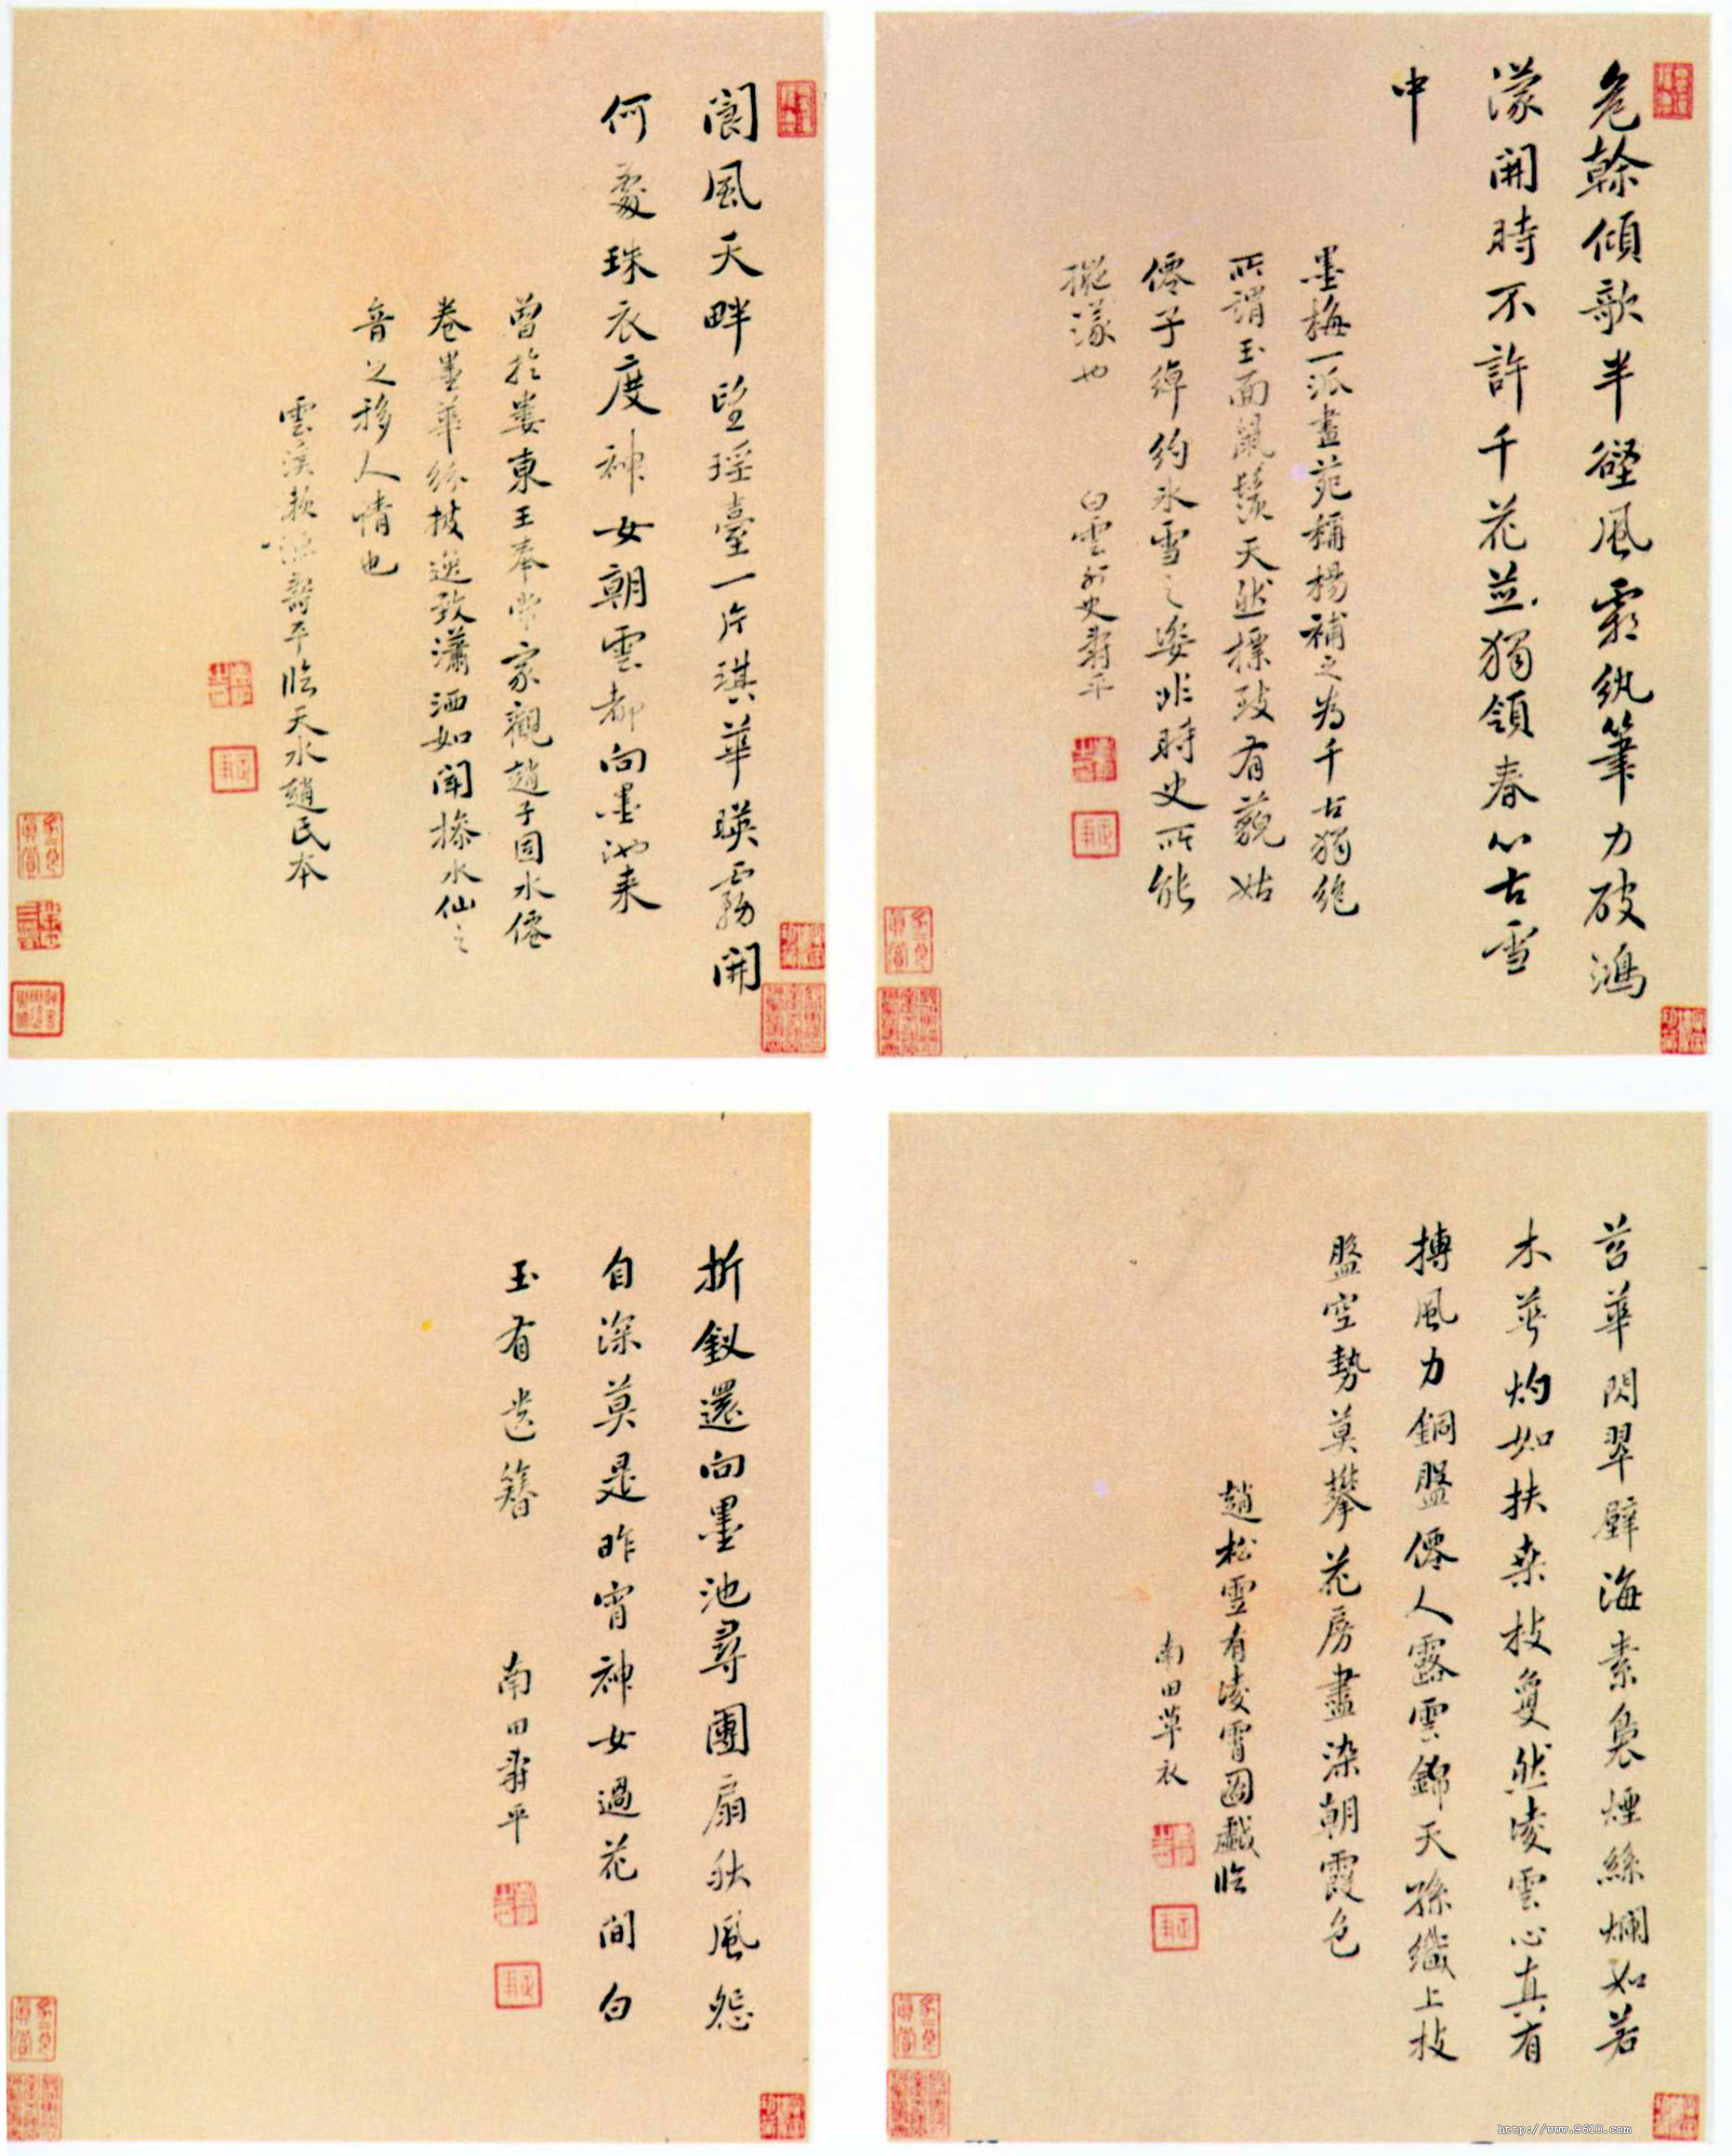 危榦傾欹半壁風霜紈筆力破鴻
濛開時不許千花並獨領春心古雪
中
墨梅一派畫苑稱楊補之為千古獨絕
所謂玉面風鬟天然標致有藐姑
僊子綽約冰雪之姿非時史所能
擬濛也
白雲外史壽平
閬風天畔望瑶臺一片琪華暎霧開
何處珠衣度神女朝雲都向墨池来
曾於婁東王奉常家觀趙子固水僊
卷墨華紛披逸致瀟洒如聞操水仙之
音之移人情也
雲溪漁壽平臨天水趙氏本
苕華閃翠壁海素裊煙絲爛如若
木華灼如扶桒枝夐然凌雲心真有
摶風力銅盤僊人露雲錦天孫織上枝
盤空勢莫攀花房盡染朝霞色
趙松雪有凌霄圖戲臨
南田草衣
折釵還向墨池尋團扇秋風怨
自深莫是昨宵神女過花間白
玉有遺簪
南田壽平
http://www.9610.com